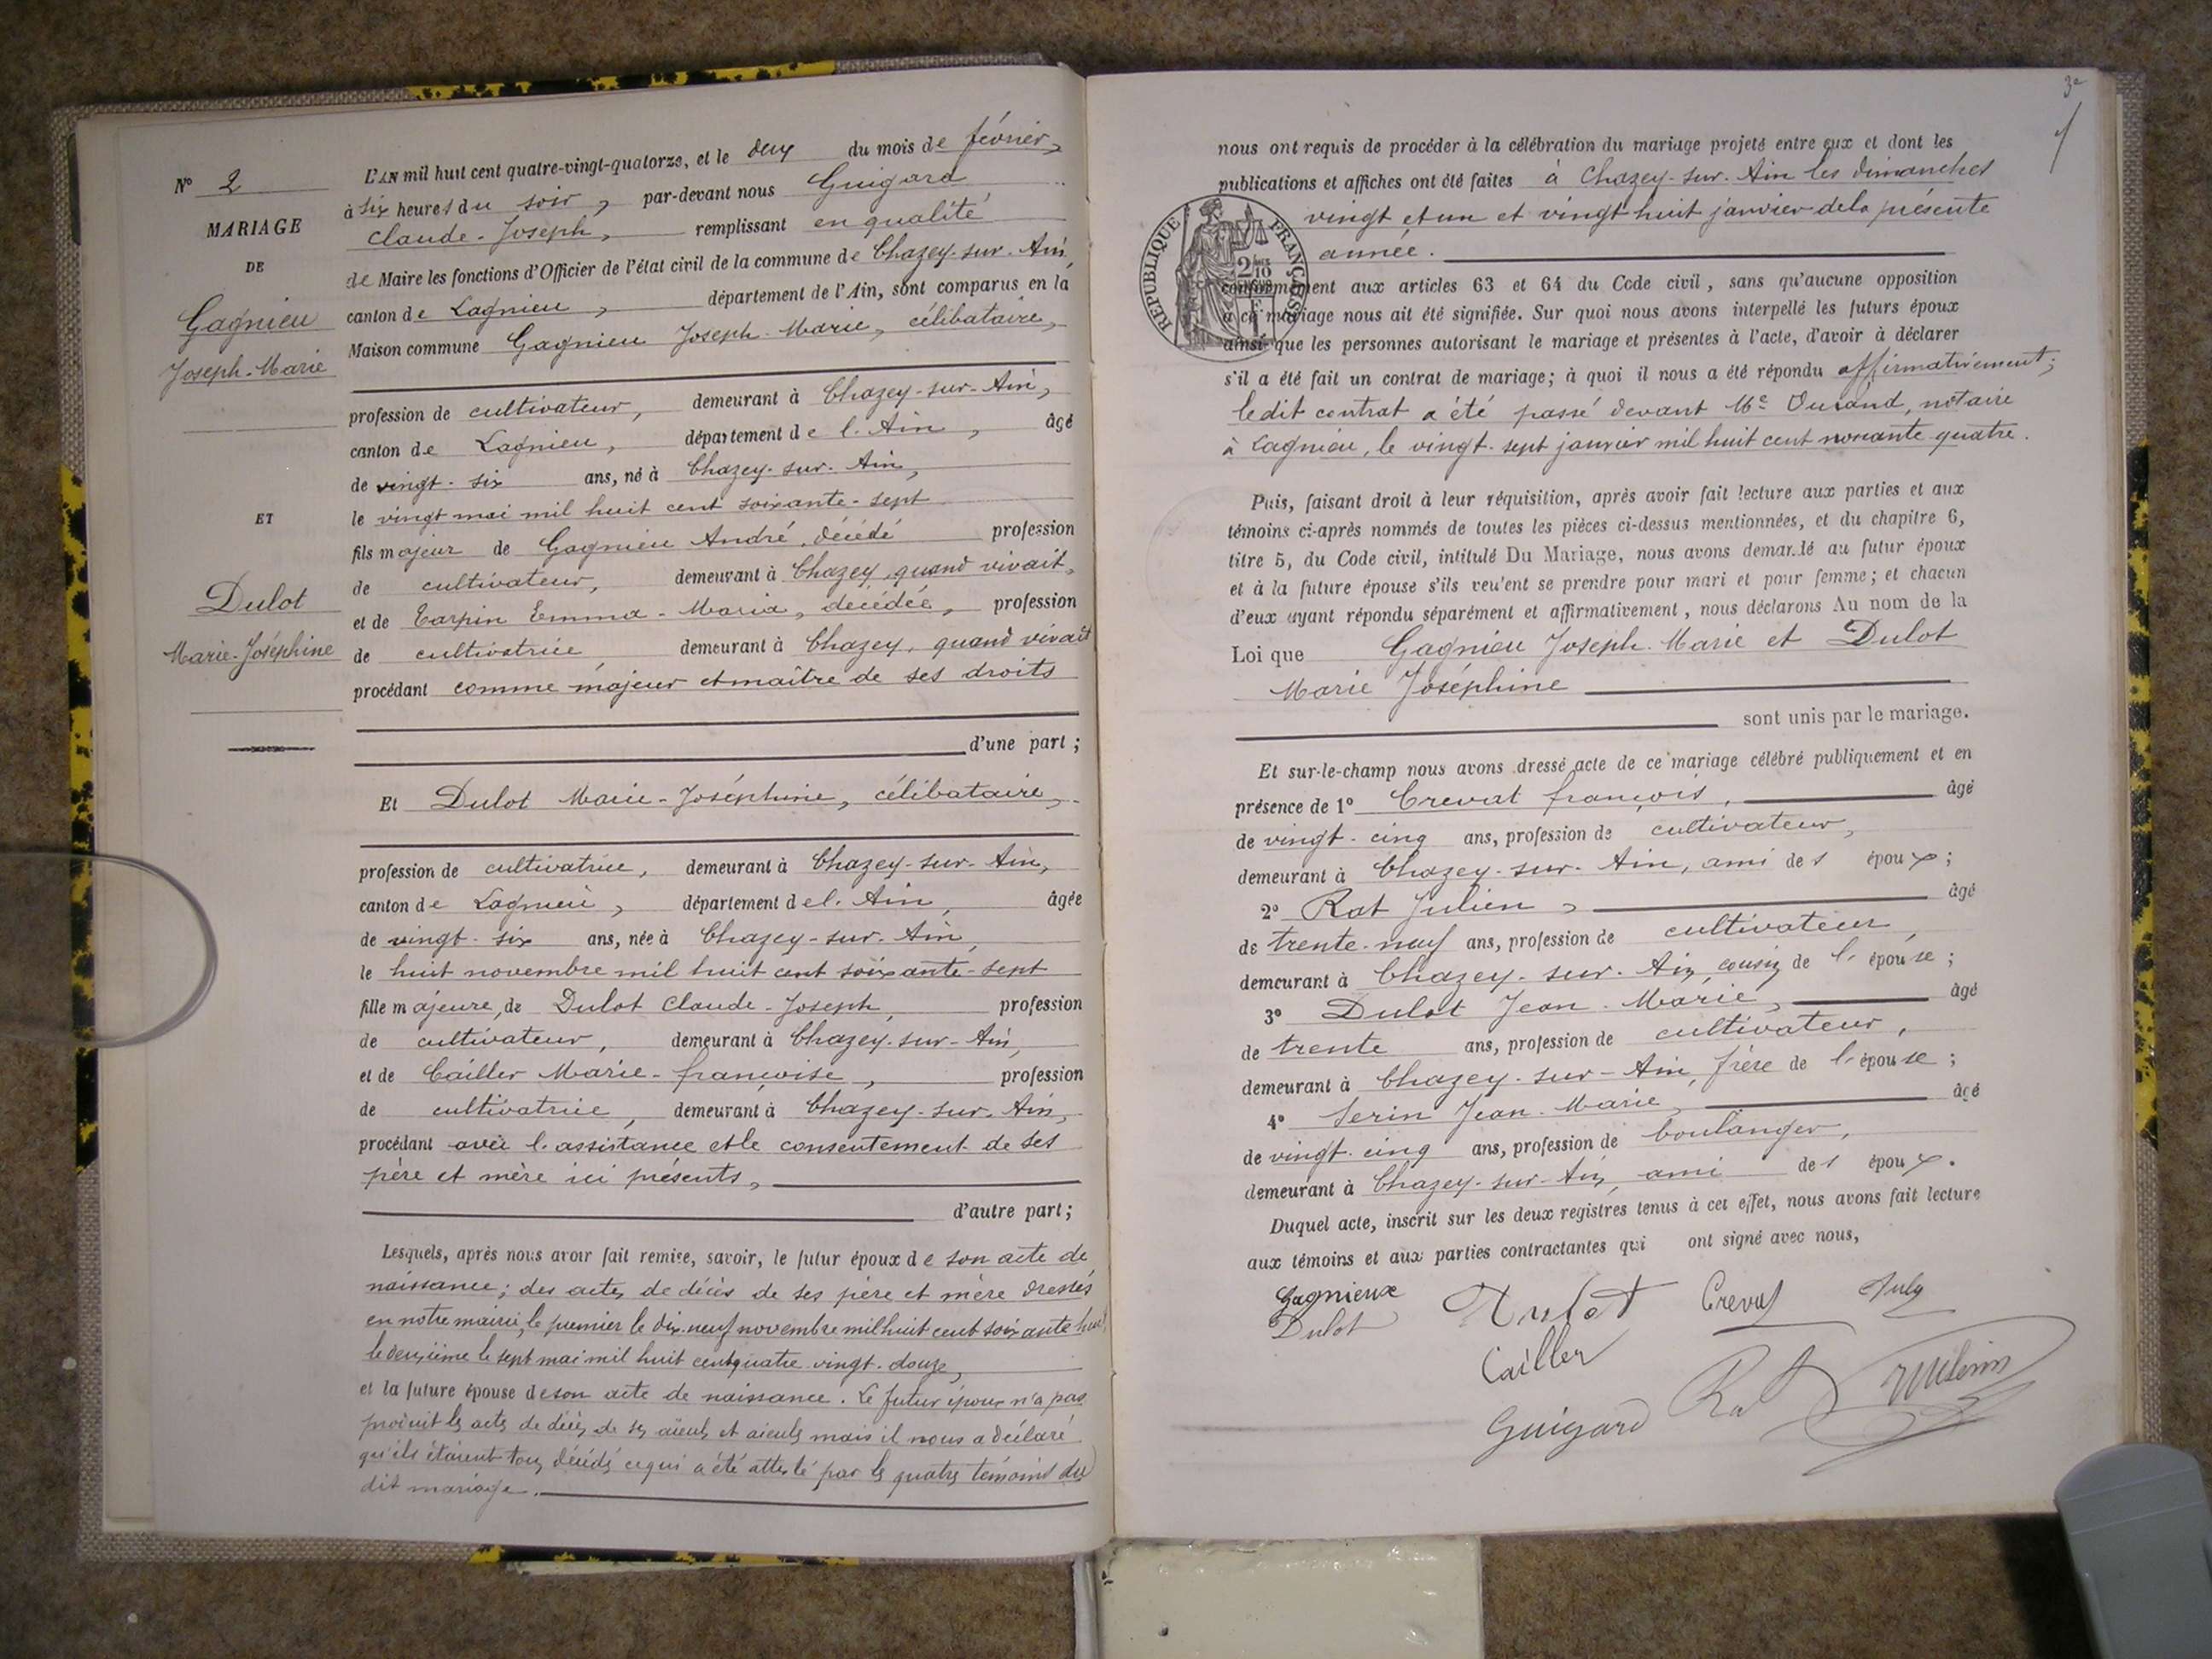 N° 2
MARIAGE
DE
Gagnieu
Joseph-Marie
ET
Dulot
Marie-Joséphine
L'AN mil huit cent quatre-vingt-quatorze, et le deux du mois de février,
à six heures du soir, par-devant nous Guigard
Claude-Joseph, remplissant en qualité
de Maire les fonctions d'Officier de l'état civil de la commune de Chazey-sur-Ain,
canton de Lagnieu, département de l'Ain, sont comparus en la
Maison commune Gagnieu Joseph-Marie, célibataire,
profession de cultivateur, demeurant à Chazey-sur-Ain,
canton de Lagnieu, département de l'Ain, âgé
de vingt-six ans, né à Chazey-sur-Ain,
le vingt mai mil huit cent soixante-sept
fils majeur de Gagnieu André, décédé profession
de cultivateur, demeurant à Chazey, quand vivait,
et de Tarpin Emma-Maria, décédée, profession
de cultivatrice, demeurant à Chazey, quand vivait
procédant comme majeur et maître de ses droits
d'une part;
Et Dulot Marie-Joséphine, célibataire,
profession de cultivatrice, demeurant à Chazey-sur-Ain,
canton de Lagnieu, département de l'Ain, âgée
de vingt-six ans, née à Chazey-sur-Ain,
le huit novembre mil huit cent soixante-sept
fille majeure, de Dulot Claude-Joseph, profession
de cultivateur, demeurant à Chazey-sur-Ain,
et de Cailler Marie-françoise, profession
de cultivatrice, demeurant à Chazey-sur-Ain,
procédant avec l'assistance et le consentement de ses
père et mère ici présents,
d'autre part;
Lesquels, après nous avoir fait remise, savoir, le futur époux de son acte de
naissance; des actes de décès de ses père et mère dressés
en notre mairie, le premier le dix-neuf novembre mil huit cent soixante huit
le deuxième le sept mai mil huit cent quatre-vingt-douze,
et la future épouse de son acte de naissance. Le futur époux n'a pas
produit les actes de décès de ses aïeuls et aïeules mais il nous a déclaré
qu'ils étaient tous décédés ce qui a été attesté par les quatre témoins du
dit mariage.
3e
nous ont requis de procéder à la célébration du mariage projeté entre eux et dont les
publications et affiches ont été faites à Chazey-sur-Ain les dimanches
vingt et un et vingt huit janvier de la présente
année.
RÉPUBLIQUE FRANÇAISE
conformément aux articles 63 et 64 du Code civil, sans qu'aucune opposition
à ce mariage nous ait été signifiée. Sur quoi nous avons interpellé les futurs époux
ainsi que les personnes autorisant le mariage et présentes à l'acte, d'avoir à déclarer
s'il a été fait un contrat de mariage; à quoi il nous a été répondu affirmativement;
ledit contrat a été passé devant Me Durand, notaire
à Lagnieu, le vingt-sept janvier mil huit cent nonante quatre.
Puis, faisant droit à leur réquisition, après avoir fait lecture aux parties et aux
témoins ci-après nommés de toutes les pièces ci-dessus mentionnées, et du chapitre 6,
titre 5, du Code civil, intitulé Du Mariage, nous avons demandé au futur époux
et à la future épouse s'ils veulent se prendre pour mari et pour femme; et chacun
d'eux ayant répondu séparément et affirmativement, nous déclarons Au nom de la
Loi que Gagnieu Joseph-Marie et Dulot
Marie Joséphine
sont unis par le mariage.
Et sur-le-champ nous avons dressé acte de ce mariage célébré publiquement et en
présence de 1° Crevat françois, âgé
de vingt-cinq ans, profession de cultivateur,
demeurant à Chazey-sur-Ain, ami des époux;
2° Rat Julien, âgé
de trente-neuf ans, profession de cultivateur,
demeurant à Chazey-sur-Ain, cousin de l'épouse;
3° Dulot Jean-Marie, âgé
de trente ans, profession de cultivateur,
demeurant à Chazey-sur-Ain, frère de l'épouse;
4° Serin Jean-Marie, âgé
de vingt-cinq ans, profession de boulanger,
demeurant à Chazey-sur-Ain, ami des époux.
Duquel acte, inscrit sur les deux registres tenus à cet effet, nous avons fait lecture
aux témoins et aux parties contractantes qui ont signé avec nous,
Gagnieux Crevat
Dulot
Cailler
Guigard Rat